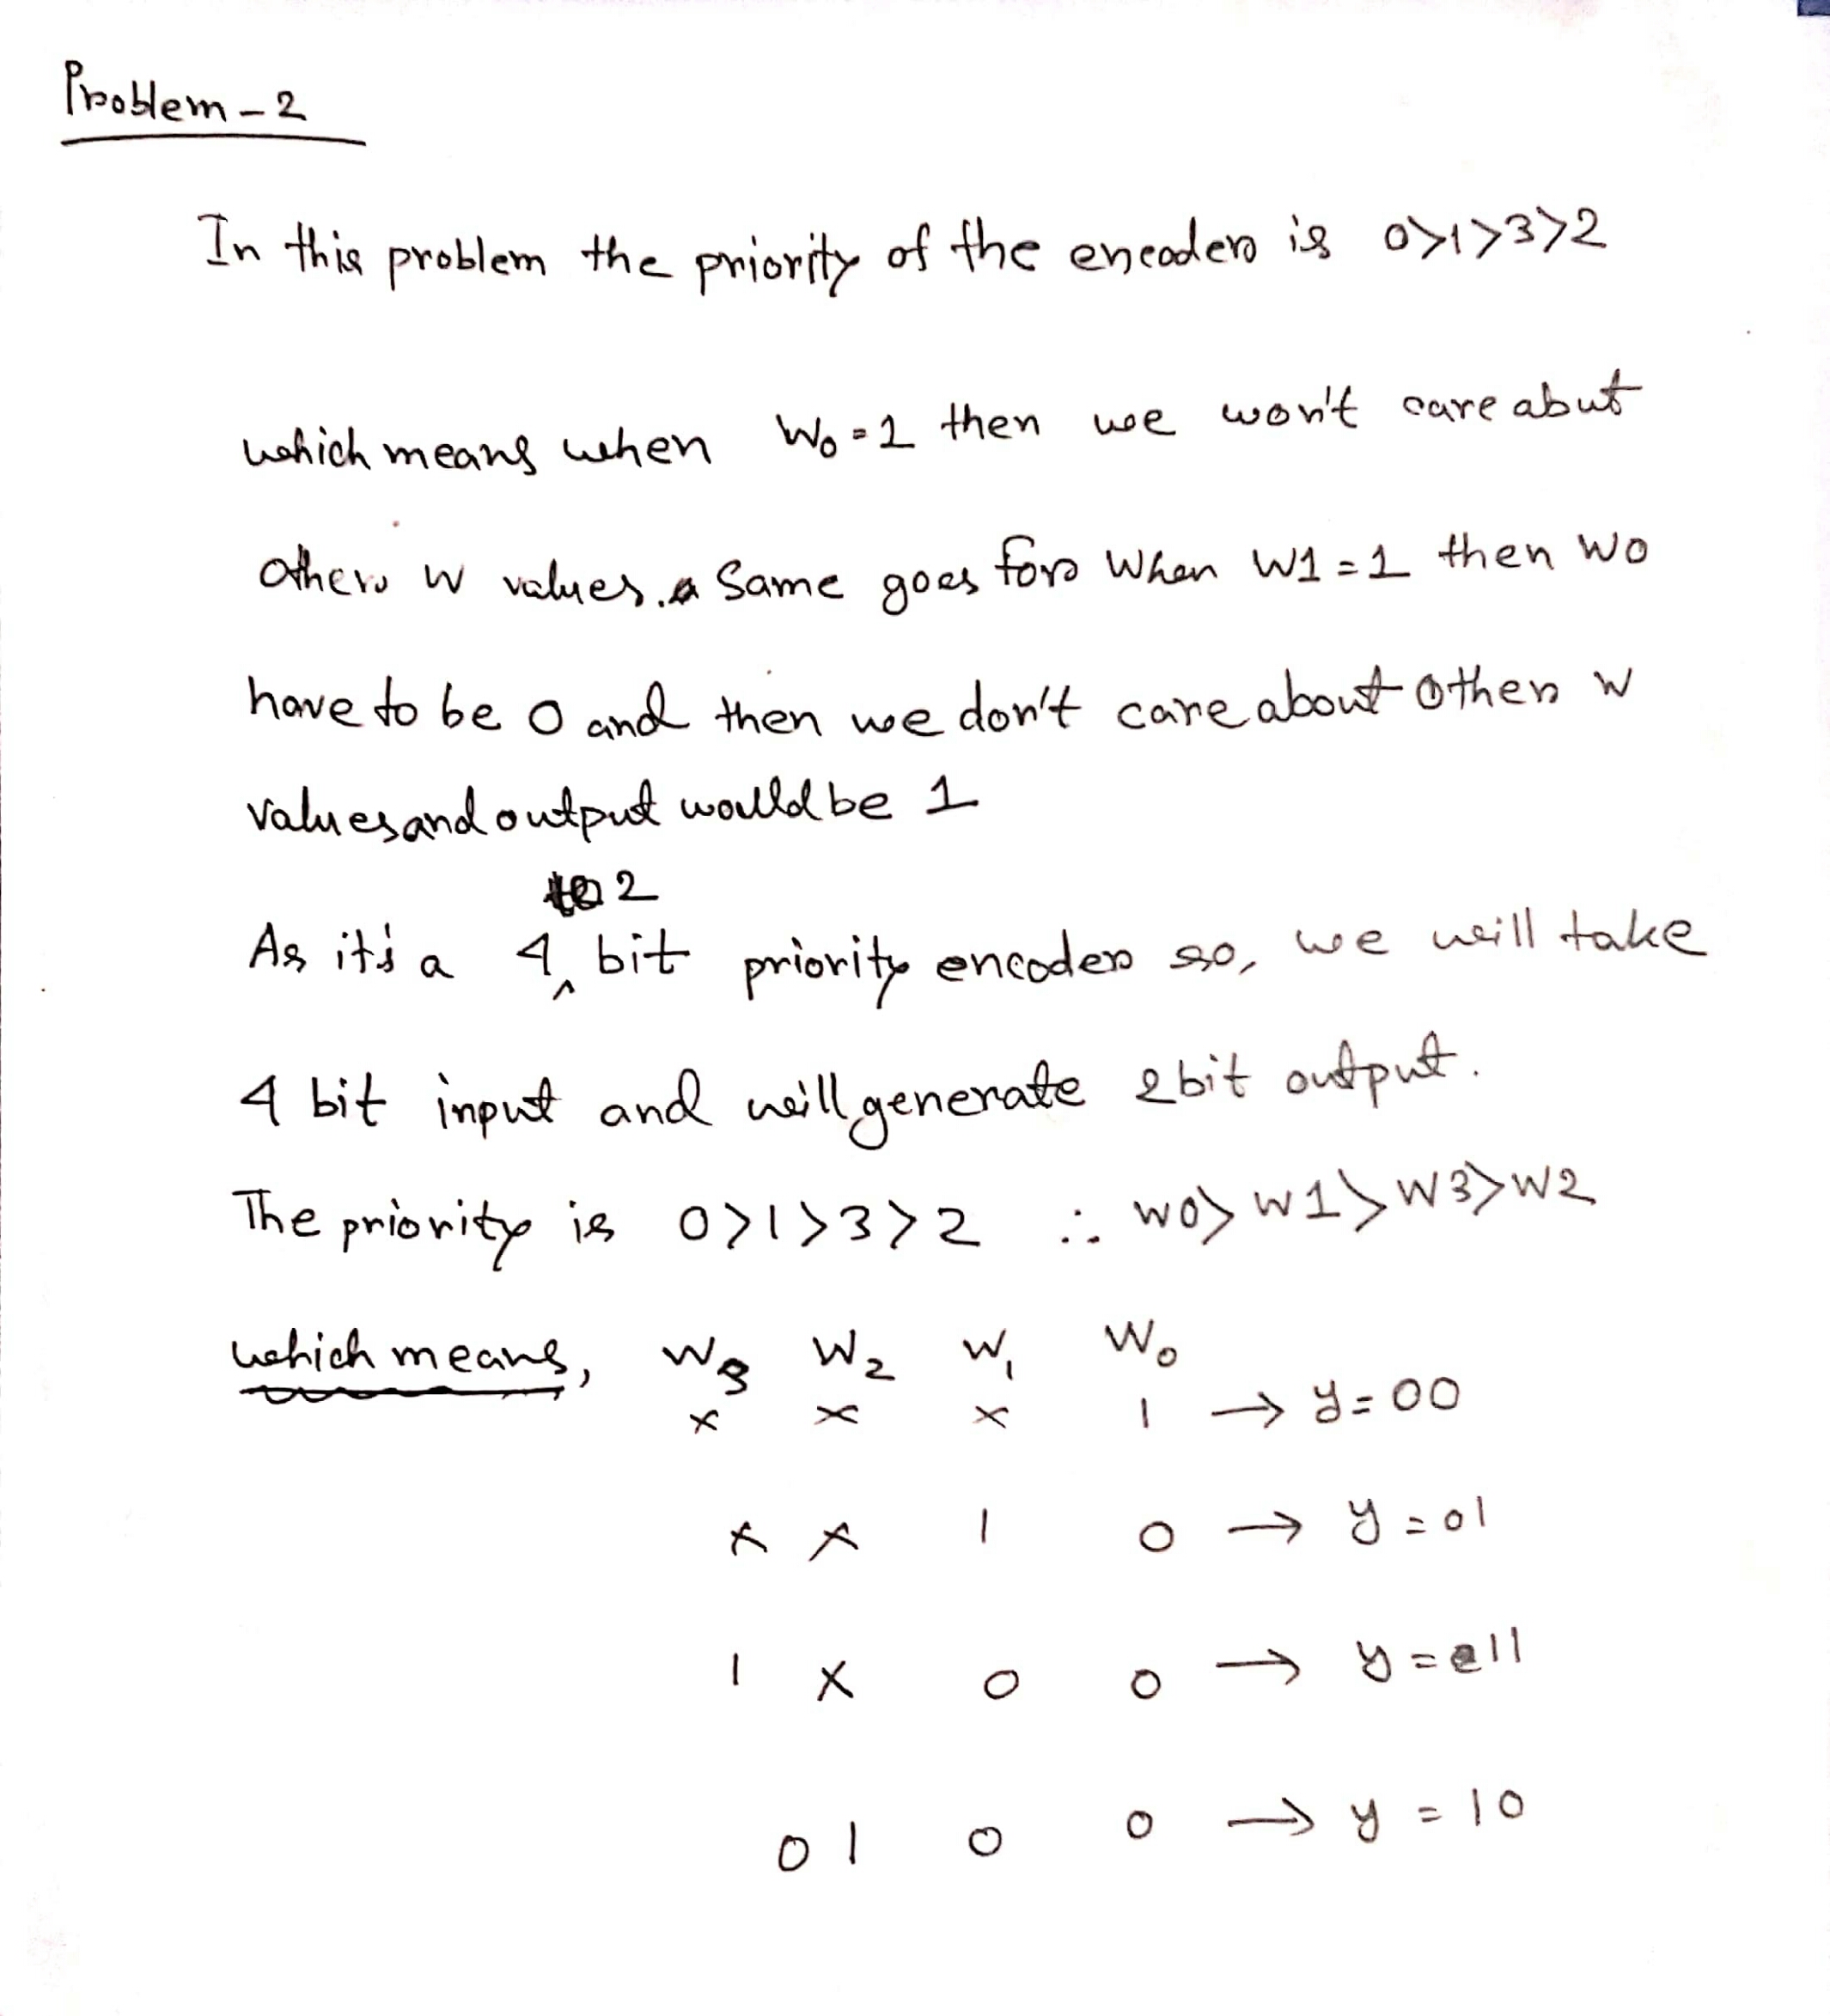 Problem-2
In this problem the priority of the encoder is 0>1>3>2
which means when W0=1 then we won't care abut
other w values. Same goes for when W1=1 then W0
have to be 0 and then we don't care about other w
values and output would be 1
to 2
As it's a 4 bit priority encoder so, we will take
4 bit input and will generate 2bit output.
The priority is 0>1>3>2 ∴ W0>W1>W3>W2
which means, W3 W2 W1 W0
x x x 1 → y=00
x x 1 0 → y=01
1 x 0 0 → y=11
0 1 0 0 → y=10